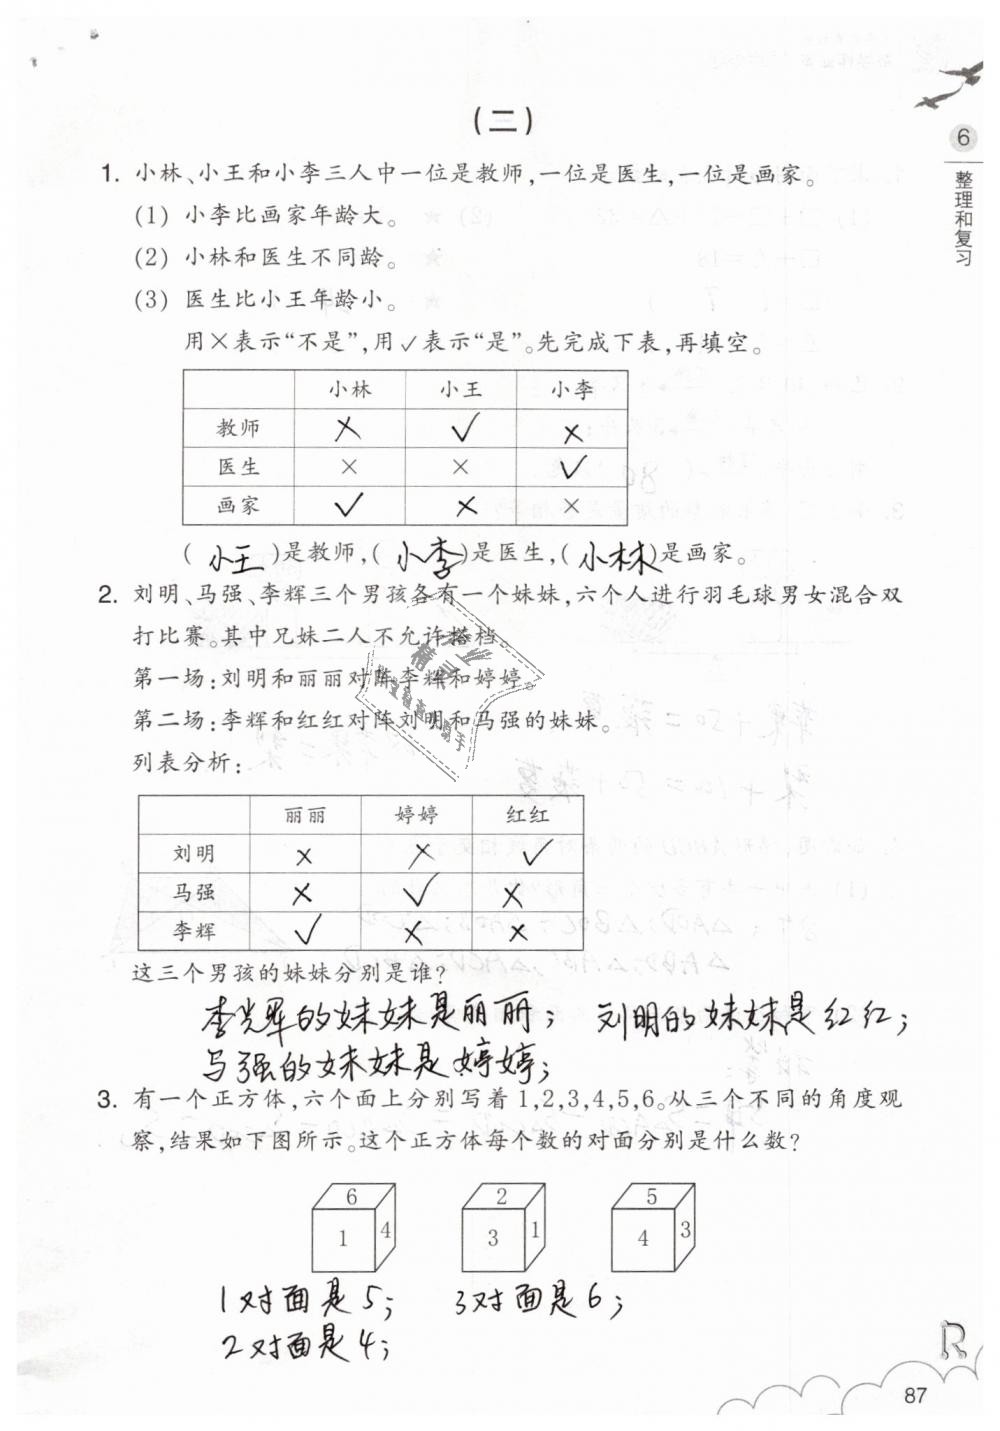 (二)
6
整理和复习
1. 小林、小王和小李三人中一位是教师,一位是医生,一位是画家。
(1) 小李比画家年龄大。
(2) 小林和医生不同龄。
(3) 医生比小王年龄小。
用×表示“不是”,用√表示“是”。先完成下表,再填空。
小林 小王 小李
教师 × √ ×
医生 × × √
画家 √ × ×
(小王)是教师,(小李)是医生,(小林)是画家。
2. 刘明、马强、李辉三个男孩各有一个妹妹,六个人进行羽毛球男女混合双
打比赛。其中兄妹二人不允许搭档。
第一场:刘明和丽丽对阵李辉和婷婷。
第二场:李辉和红红对阵刘明和马强的妹妹。
列表分析:
丽丽 婷婷 红红
刘明 × × √
马强 × √ ×
李辉 √ × ×
这三个男孩的妹妹分别是谁?
李辉的妹妹是丽丽; 刘明的妹妹是红红;
马强的妹妹是婷婷;
3. 有一个正方体,六个面上分别写着1,2,3,4,5,6。从三个不同的角度观
察,结果如下图所示。这个正方体每个数的对面分别是什么数?
6 2 5
1 4 3 1 4 3
1对面是5; 3对面是6;
2对面是4;
R
87